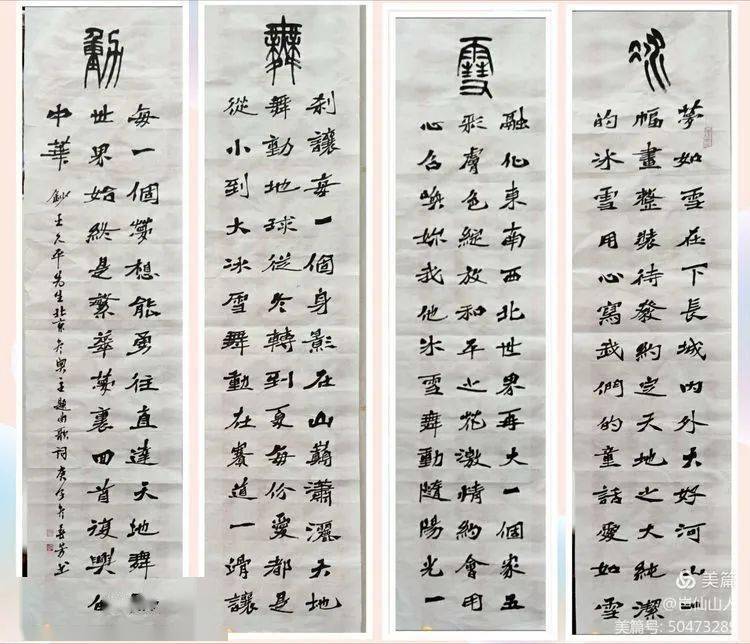 冰
夢如雪在下長城內外大好河山一
幅畫整裝待發約定天地之大純潔
的冰雪用心寫我們的童話愛如雪
雪
融化東南西北世界再大一個家五
彩膚色綻放和平之花激情約會用
心召喚妳我他冰雪舞動隨陽光一
舞
刹讓每一個身影在山藹瀟灑天地
舞動地球從冬轉到夏每份愛都是
從小到大冰雪舞動在賽道一滑讓
動
每一個夢想能勇往直達天地舞
世界始終是繁華夢裏回首復興
中華
鈔王久平先生北京冬奧主題曲歌詞庚子冬
美篇
仙山人
美篇号: 50473289